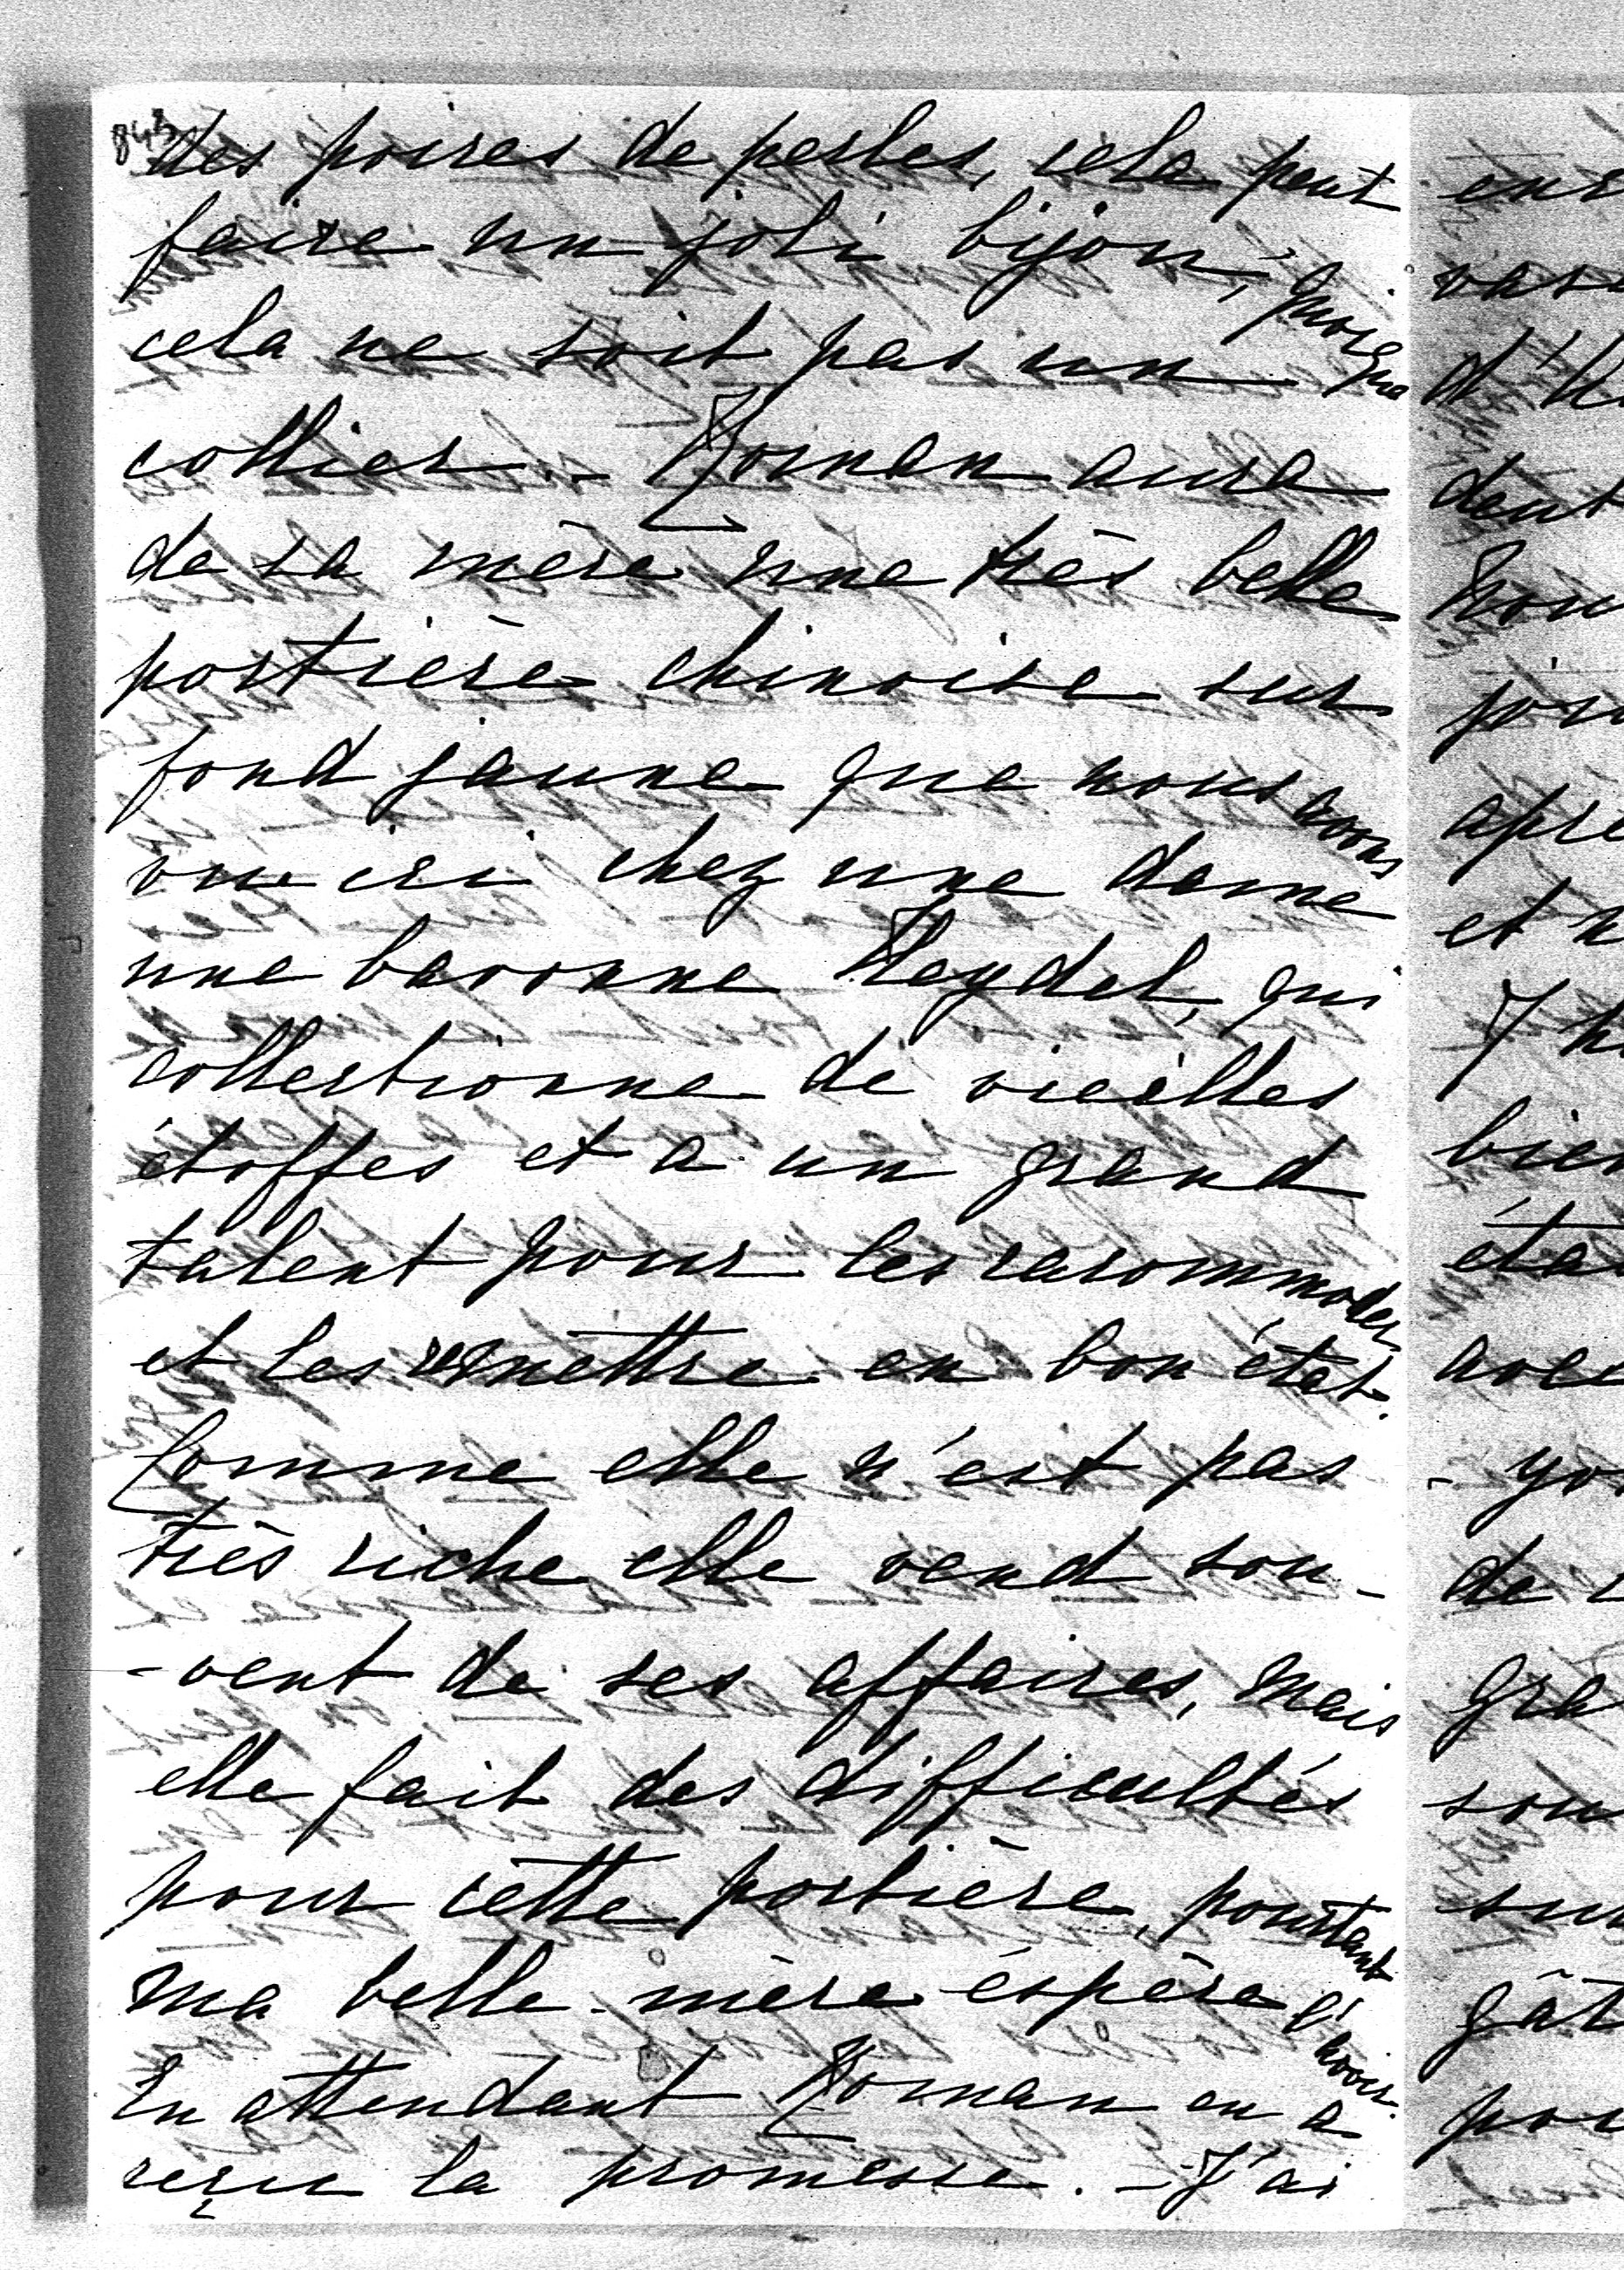 843
des poires de perles, cela peut
faire un joli bijou, quoique
cela ne soit pas un
collier. - Roman aura
de sa mère une très belle
portière chinoise sur
fond jaune que nous avons
vu ici chez une dame
une baronne Heydel, qui
collectionne de vieilles
étoffes et a un grand
talent pour les racommoder
et les remettre en bon état.
Comme elle n'est pas
très riche elle vend sou-
-vent de ses affaires, mais
elle fait des difficultés
pour cette portière, pourtant
ma belle-mère éspère l'avoir.
En attendant Roman en a
reçu la promesse. - J'ai